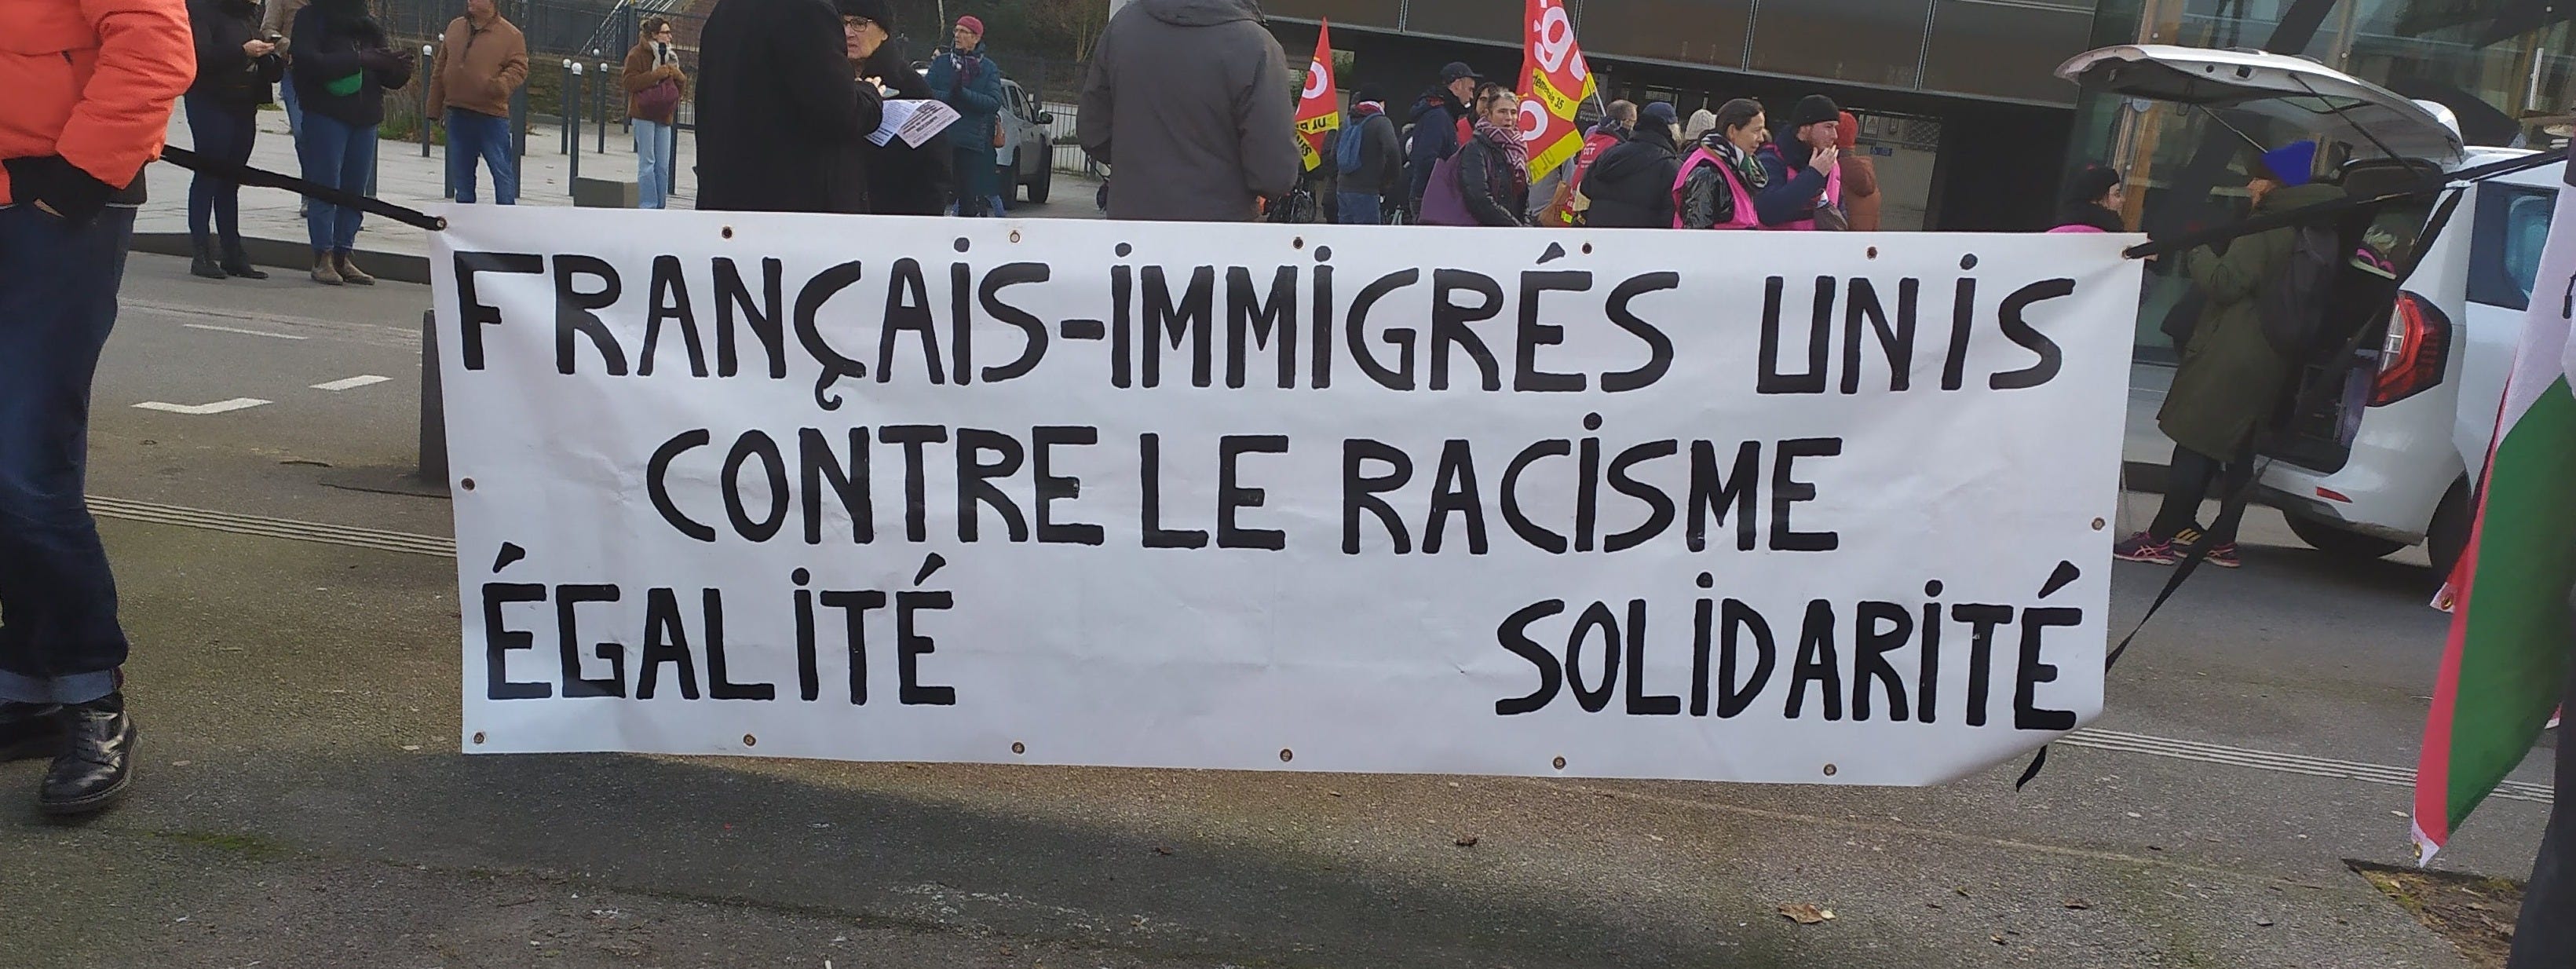 FRANÇAIS-IMMIGRÉS UNIS
CONTRE LE RACISME
ÉGALITÉ SOLIDARITÉ
cgt
35